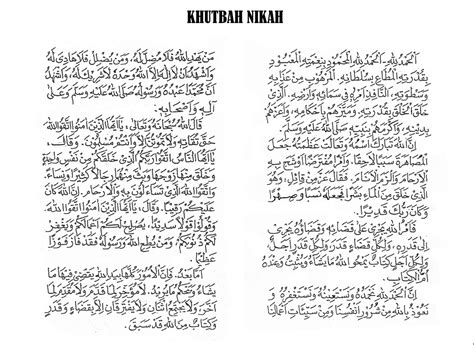 KHUTBAH NIKAH
اَلْحَمْدُ لِلّٰهِ، اَلْحَمْدُ لِلّٰهِ الْمَحْمُوْدِ بِنِعْمَتِهِ الْمَعْبُوْدِ
بِقُدْرَتِهِ الْمُطَاعِ بِسُلْطَانِهِ. اَلْمَرْهُوْبِ مِنْ عَذَابِهِ
وَسَطْوَتِهِ النَّافِذِ اَمْرُهُ فِى سَمَائِهِ وَاَرْضِهِ. اَلَّذِى
خَلَقَ الْخَلْقَ بِقُدْرَتِهِ. وَمَيَّزَهُمْ بِاَحْكَامِهِ. وَاَعَزَّهُمْ
بِدِيْنِهِ. وَاَكْرَمَهُمْ بِنَبِيِّهِ صَلَّى اللهُ عَلَيْهِ وَسَلَّمَ.
اِنَّ اللهَ تَبَارَكَ اسْمُهُ وَتَعَالَتْ عَظَمَتُهُ جَعَلَ
الْمُصَاهَرَةَ سَبَبًا لَاحِقًا. وَاَمْرًا مُفْتَرَضًا
فَقَالَ عَزَّ مِنْ قَائِلٍ، وَهُوَ
الَّذِى خَلَقَ مِنَ الْمَاءِ بَشَرًا فَجَعَلَهُ نَسَبًا وَصِهْرًا
وَكَانَ رَبُّكَ قَدِيْرًا.
يَجْرِى عَلَى قَضَائِهِ وَقَضَاؤُهُ يَجْرِى
اِلَى قَدَرِهِ. وَلِكُلِّ قَضَاءٍ قَدَرٌ وَلِكُلِّ قَدَرٍ اَجَلٌ،
وَلِكُلِّ اَجَلٍ كِتَابٌ يَمْحُو اللهُ مَا يَشَاءُ وَيُثْبِتُ وَعِنْدَهُ
اُمُّ الْكِتَابِ.
اِنَّ الْحَمْدَ لِلّٰهِ نَحْمَدُهُ وَنَسْتَعِيْنُهُ وَنَسْتَغْفِرُهُ وَ
نَعُوْذُ بِاللهِ مِنْ شُرُوْرِ اَنْفُسِنَا وَمِنْ سَيِّئَاتِ اَعْمَالِنَا
مَنْ يَهْدِ اللهُ فَلَا مُضِلَّ لَهُ، وَمَنْ يُضْلِلْ فَلَا هَادِيَ لَهُ
وَاَشْهَدُ اَنْ لَا اِلٰهَ اِلَّا اللهُ وَحْدَهُ لَا شَرِيْكَ لَهُ، وَاَشْهَدُ
اَنَّ مُحَمَّدًا عَبْدُهُ وَرَسُوْلُهُ صَلَّى اللهُ عَلَيْهِ وَسَلَّمَ وَعَلَى
اٰلِهِ وَاَصْحَابِهِ.
قَالَ اللهُ سُبْحَانَهُ وَتَعَالَى، يَااَيُّهَا الَّذِيْنَ اٰمَنُوا اتَّقُوا اللهَ
حَقَّ تُقَاتِهِ وَلَا تَمُوْتُنَّ اِلَّا وَاَنْتُمْ مُسْلِمُوْنَ. وَقَالَ،
يَااَيُّهَا النَّاسُ اتَّقُوْا رَبَّكُمُ الَّذِيْ خَلَقَكُمْ مِنْ نَفْسٍ وَاحِدَةٍ
وَخَلَقَ مِنْهَا زَوْجَهَا وَبَثَّ مِنْهُمَا رِجَالًا كَثِيْرًا وَنِسَاءً،
وَاتَّقُوا اللهَ الَّذِيْ تَسَاءَلُوْنَ بِهِ وَالْاَرْحَامَ. اِنَّ اللهَ كَانَ
عَلَيْكُمْ رَقِيْبًا. وَقَالَ، يَااَيُّهَا الَّذِيْنَ اٰمَنُوا اتَّقُوا اللهَ
وَقُوْلُوْا قَوْلًا سَدِيْدًا. يُصْلِحْ لَكُمْ اَعْمَالَكُمْ وَيَغْفِرْ
لَكُمْ ذُنُوْبَكُمْ، وَمَنْ يُطِعِ اللهَ وَرَسُوْلَهُ فَقَدْ فَازَ فَوْزًا
عَظِيْمًا.
اَمَّا بَعْدُ. فَاِنَّ الْاُمُوْرَ كُلَّهَا بِيَدِ اللهِ يَقْضِيْ فِيْهَا مَا
يَشَاءُ وَيَحْكُمُ مَا يُرِيْدُ. لَا مُؤَخِّرَ لِمَا قَدَّمَ وَلَا مُقَدِّمَ لِمَا
اَخَّرَ، وَلَا يَجْتَمِعُ اثْنَانِ وَلَا يَفْتَرِقَانِ اِلَّا بِقَضَاءٍ وَقَدَرٍ
وَكِتَابٍ مِنَ اللهِ قَدْ سَبَقَ